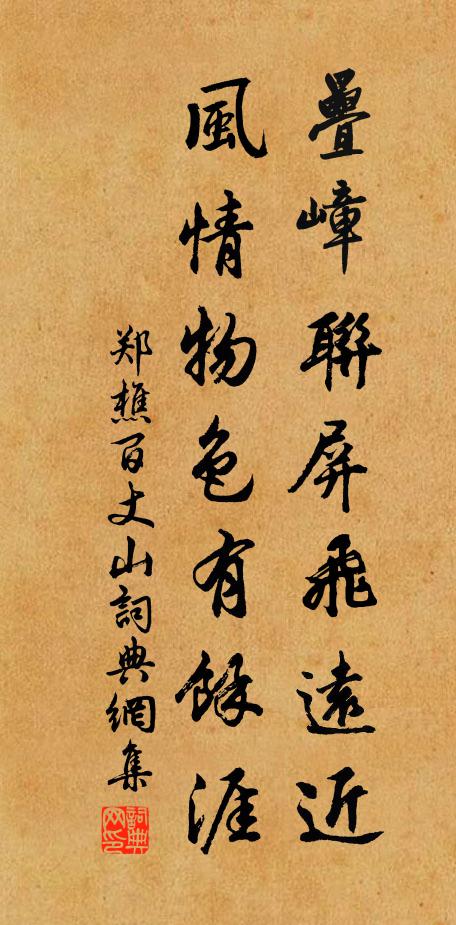 疊嶂聯屏飛遠近
風情物色有餘涯
郑樵百丈山詞典網集
詞典網印